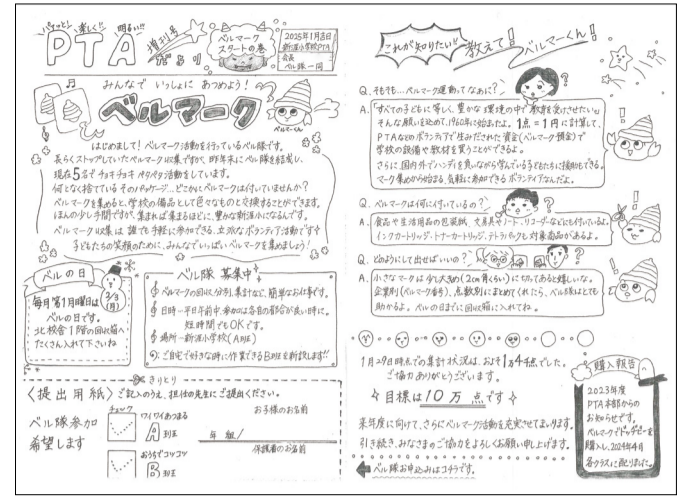 パイッと!楽しく!!明るい!!!
PTA
増刊号
だより
ベルマーク
スタートの巻
2025年1月吉日
新涯小学校PTA
会長
ベル隊一同
みんなで いっしょに あつめよう!
ベルマーク
ベルマーくん
はじめまして!ベルマーク活動を行っているベル隊です。
長らくストップしていたベルマーク収集ですが、昨年末にベル隊を結成し、
現在5名でチョキチョキ ペタペタ活動をしています。
何となく捨てているそのパッケージ…どこかにベルマークは付いていませんか?
ベルマークを集めると、学校の備品として色々なものと交換することができます。
ほんの少し手間ですが、集まれば集まるほどに、豊かな新涯小になるんです。
ベルマーク収集は誰でも手軽に参加できる、立派なボランティア活動です
子どもたちの笑顔のために、みんなでいっぱいベルマークを集めましょう!
ベルの日
毎月第1月曜日は
ベルの日です。
北校舎1階の回収箱へ
たくさん入れて下さいね
2/3
(月)
ベル隊 募集中
ベルマークの回収、分別、集計など、簡単なお仕事です。
日時…平日午前中、参加は各自の都合が良い時に。
短時間でもOKです。
場所…新涯小学校(A班)
ご自宅で好きな時に作業できるB班を新設します!!
きりとり
〈提出用紙〉ご記入のうえ、担任の先生にご提出ください。
ベル隊参加
希望します
チェック
ワイワイあつまる
A班
おうちでコツコツ
B班
お子様のお名前
年 組/
保護者のお名前
これが知りたい!!教えて!ベルマーくん!
Q. そもそも…ベルマーク運動ってなあに?
A.「すべての子どもに等しく、豊かな環境の中で教育を受けさせたい」
そんな願いを込めて、1960年に始まったよ。1点=1円に計算して、
PTAなどのボランティアで生みだされた資金(ベルマーク預金)で
学校の設備や教材を買うことができるよ。
さらに、国内外でハンディを負いながら学んでいる子どもたちに援助もできる。
マーク集めから始まる、気軽に参加できるボランティアなんだよ。
Q. ベルマークは何に付いているの?
A. 食品や生活用品の包装紙、文房具やノート・リコーダーなどにも付いているよ。
インクカートリッジ・トナーカートリッジ、テトラパックも対象商品があるよ。
Q. どのようにして出せばいいの?
A. 小さなマークは少し大きめ(2cm角くらい)に切ってあると嬉しいな。
企業別(ベルマーク番号)、点数別にまとめてくれたら、ベル隊はとても
助かるよ。ベルの日までに回収箱に入れてね。
1月29日時点での集計状況は、およそ1万4千点でした。
ご協力ありがとうございます。
目標は10万点です
来年度に向けて、さらにベルマーク活動を充実させてまいります。
引き続き、みなさまのご協力をよろしくお願い申し上げます。
ベル隊お申込みはコチラです。
購入報告
2023年度
PTA本部からの
お知らせです。
ベルマークでドッヂビーを
購入し、2024年4月
各クラスに配りました。